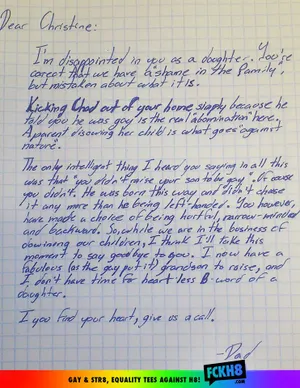 Dear Christine:
I'm disappointed in you as a daughter. You're
correct that we have "a shame in the family",
but mistaken about what it is.
Kicking Chad out of your home simply because he
told you he was gay is the real "abomination" here.
A parent disowning her child is what goes "against
nature".
The only intelligent thing I heard you saying in all this
was that "you didn't raise your son to be gay". Of course
you didn't. He was born this way and didn't choose
it any more than he being left-handed. You however,
have made a choice of being hurtful, narrow-minded
and backward. So, while we are in the business of
disowning our children, I think I'll take this
moment to say goodbye to you. I now have a
fabulous (as the gay put it) grandson to raise, and
I don't have time for heart less B-word of a
daughter.
If you find your heart, give us a call.
-Dad
GAY & STR8, EQUALITY TEES AGAINST H8!
FCKH8
.com